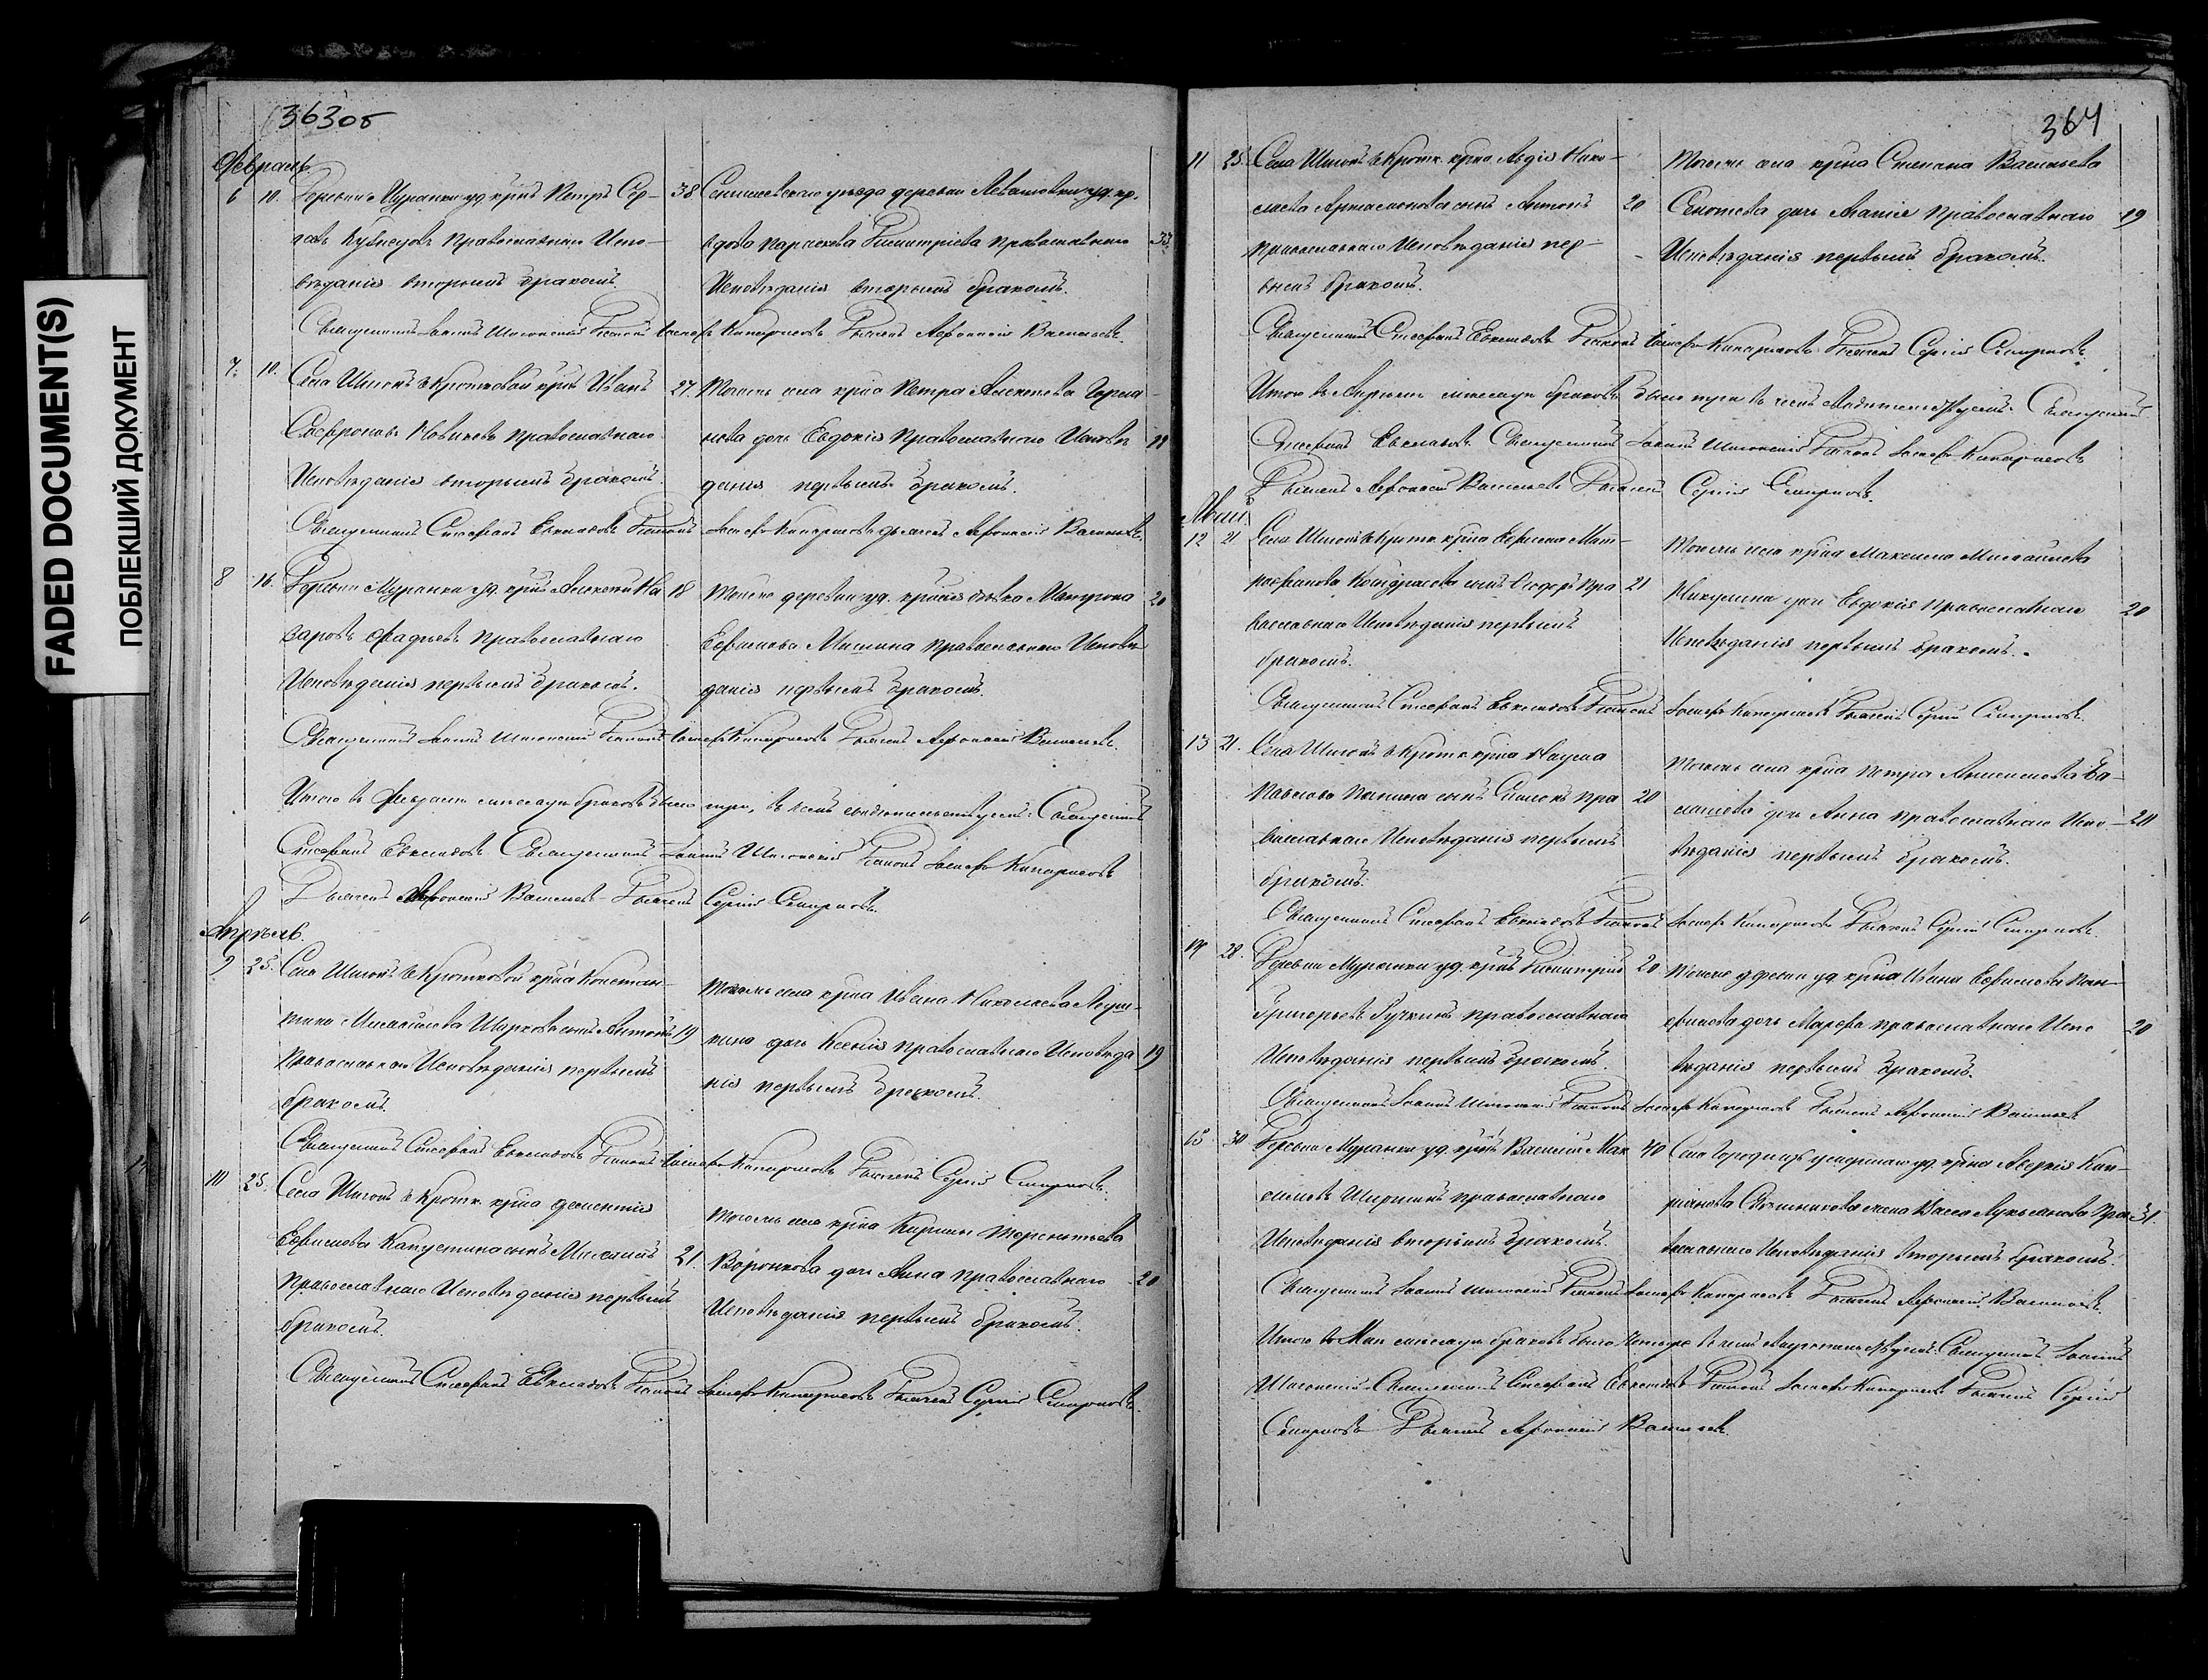 FADED DOCUMENT(S)
ПОБЛЕКШИЙ ДОКУМЕНТ
363об
Февраль.
6 10. Деревни Муранки уд. крнъ Петръ Сер- 38
Кузнецовъ Православнаго Испо-
вѣданія вторымъ бракомъ.
Сенгилеевскаго уѣзда деревни уд. кр.
вдова Параскева Димитріева Православнаго 33.
Исповѣданія вторымъ бракомъ.
Священникъ Іоаннъ Шигонскій Діаконъ Іосифъ Кипарисовъ Дьячекъ Афонасій Васильевъ.
7. 10. Села Шигонъ в. Кротковой крнъ Иванъ 27.
Новиковъ Православнаго
Исповѣданія вторымъ бракомъ.
Тогожъ села крна Петра Алексѣева
нова дочь Евдокія Православнаго Исповѣ-
данія первымъ бракомъ.
Священникъ Стефанъ Діаконъ Іосифъ Кипарисовъ Дьячекъ Афонасій Васильевъ.
8 16. Деревни Муранки уд. крнъ Алексѣй На- 18
заровъ Фадѣевъ Православнаго
Исповѣданія первымъ бракомъ.
Тойже деревни уд. девка Матрона 20
Ефимова Мишина Православнаго Исповѣ-
данія первымъ бракомъ.
Священникъ Іоаннъ Шигонскій Діаконъ Іосифъ Кипарисовъ Дьячекъ Афонасій Васильевъ.
Итого въ Февралѣ мѣсяцѣ браковъ было три, въ чемъ свидѣтельствуемъ: Священникъ
Стефанъ Священникъ Іоаннъ Шигонскій Діаконъ Іосифъ Кипарисовъ
Дьячекъ Афонасій Васильевъ Дьячекъ Сергій Смирновъ.
Апрѣль.
9 25. Села Шигонъ в. Кротковой крна Констан-
тина Михайлова сынъ Антонъ 19
Православнаго Исповѣданія первымъ
бракомъ.
Тогожъ села крна Ивана Николаева
кина дочь Ксенія Православнаго Исповѣда- 19
нія первымъ бракомъ.
Священникъ Стефанъ Діаконъ Іосифъ Кипарисовъ Дьячекъ Сергій Смирновъ.
10 25. Села Шигонъ в. Кротк. крна Дементія
Ефимова Капустина сынъ 21.
Православнаго Исповѣданія первымъ
бракомъ.
Тогожъ села крна Терентьева
Воронкова дочь Анна Православнаго 20
Исповѣданія первымъ бракомъ.
Священникъ Стефанъ Діаконъ Іосифъ Кипарисовъ Дьячекъ Сергій Смирновъ.
364
11 25. Села Шигонъ в. Кротк. крна Авдія Нико-
лаева Артамонова сынъ Антонъ 20
Православнаго Исповѣданія пер-
вымъ бракомъ.
Тогожъ села крна Степана Васильева
дочь Православнаго 19
Исповѣданія первымъ бракомъ.
Священникъ Стефанъ Діаконъ Іосифъ Кипарисовъ Дьячекъ Сергій Смирновъ.
Итого въ Апрѣлѣ мѣсяцѣ браковъ было три въ чемъ свидѣтельствуемъ: Священникъ
Стефанъ Священникъ Іоаннъ Шигонскій Діаконъ Іосифъ Кипарисовъ
Дьячекъ Афонасій Васильевъ Дьячекъ Сергій Смирновъ.
Май.
12 21 Села Шигонъ в. Кротк. крна Мит-
рофанова сынъ Ѳедоръ Пра- 21
вославнаго Исповѣданія первымъ
бракомъ.
Тогожъ села крна Максима Михайлова
Никулина дочь Евдокія Православнаго 20
Исповѣданія первымъ бракомъ.
Священникъ Стефанъ Діаконъ Іосифъ Кипарисовъ Дьячекъ Сергій Смирновъ.
13 21. Села Шигонъ в. Кротк. крна Наума
Павлова Панина сынъ Пра- 20
вославнаго Исповѣданія первымъ
бракомъ.
Тогожъ села крна Петра
дочь Анна Православнаго Испо- 20
вѣданія первымъ бракомъ.
Священникъ Стефанъ Діаконъ Іосифъ Кипарисовъ Дьячекъ Сергій Смирновъ.
14 28. Деревни Муранки уд. крнъ Димитрій 20
Григорьевъ Православнаго
Исповѣданія первымъ бракомъ.
Тойже деревни уд. крна Ивана Ефимова Пан-
филова дочь Марфа Православнаго Испо- 20
вѣданія первымъ бракомъ.
Священникъ Іоаннъ Шигонскій Діаконъ Іосифъ Кипарисовъ Дьячекъ Афонасій Васильевъ
15 30 Деревни Муранки уд. крнъ Василій Мак- 40
симовъ Православнаго
Исповѣданія вторымъ бракомъ.
Села умершаго уд. крна Аверкія
жена Васса Лукьянова Пра- 31.
вославнаго Исповѣданія вторымъ бракомъ.
Священникъ Іоаннъ Шигонскій Діаконъ Іосифъ Кипарисовъ Дьячекъ Афонасій Васильевъ.
Итого въ Маи мѣсяцѣ браковъ было четыре въ чемъ свидѣтельствуемъ: Священникъ Іоаннъ
Шигонскій Священникъ Стефанъ Діаконъ Іосифъ Кипарисовъ Дьячекъ Сергій
Смирновъ Дьячекъ Афонасій Васильевъ.